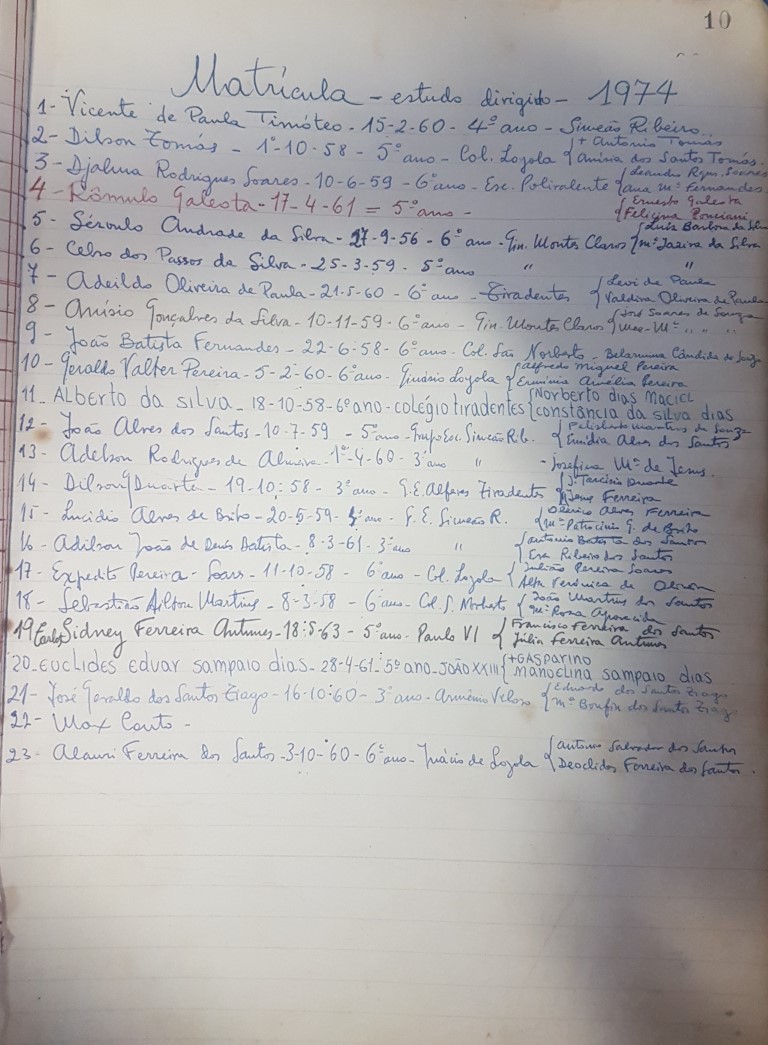 10
Matrícula - estudo dirigido - 1974
1- Vicente de Paula Timóteo - 15-2-60 - 4º ano - Simeão Ribeiro
2- Dilson Tomás - 1º-10-58 - 5º ano - Col. Loyola { + Antonio Tomás
Anísia dos Santos Tomás.
3- Djalma Rodrigues Soares - 10-6-59 - 6º ano - Esc. Polivalente { Leandro Rgs. Soares
Ana Mª Fernandes.
4- Rômulo Galeota - 17-4-61 = 5º ano - { Ernesto Galeota
Felicina Ponciani
5- Sérvulo Andrade da Silva - 27-9-56 - 6º ano - Gin. Montes Claros { Luis Barbosa da Silva
Mª Jacira da Silva
6- Celso dos Passos da Silva - 25-3-59 - 5º ano " "
7- Adeildo Oliveira de Paula - 21-5-60 - 6º ano - Tiradentes { Levi de Paula
Valdira Oliveira de Paula
8- Anísio Gonçalves da Silva - 10-11-59 - 6º ano - Gin. Montes Claros { José Soares de Souza
Mª " " "
9- João Batista Fernandes - 22-6-58 - 6º ano - Col. São Norberto - Belarmina Cândida de Souza
10- Geraldo Valter Pereira - 5-2-60 - 6º ano - Ginásio Loyola { Alfredo Miguel Pereira
Ermínia Amélia Pereira
11- Alberto da Silva - 18-10-58 - 6º ano - colégio tiradentes { Norberto dias maciel
constância da silva dias
12- João Alves dos Santos - 10-7-59 - 5º ano - Grupo Esc. Simeão Rib. { Martins de Souza
Emídia Alves dos Santos
13- Adelson Rodrigues de - 1º-4-60 - 3º ano " - Josefina Mª de Jesus.
14- Dilson Duarte - 19-10-58 - 3º ano - G.E. Alferes Tiradentes { Jº Tarcísio Duarte
Ferreira
15- Lucidio Alves de Brito - 20-5-59 - ano - G.E. Simeão R. { Alves Ferreira
Mª Patrocínio G. de Brito
16- Adilson João de Deus Batista - 8-3-61 - 3º ano " { Antonio Batista dos Santos
Eva Ribeiro dos Santos
17- Expedito Pereira Soares - 11-10-58 - 6º ano - Col. Loyola { Julião Pereira Soares
Alta Verônica de Oliveira
18- Sebastião Ailton Martins - 8-3-58 - 6º ano - Col. S. Norberto { João Martins dos Santos
Mª Rosa Aparecida
19 Carlos Sidney Ferreira Antunes - 18-5-63 - 5º ano - Paulo VI { Francisco Ferreira dos Santos
Júlia Ferreira Antunes
20- Euclides eduar sampaio dias - 28-4-61 - 5º ano - JOÃO XXIII { + GASParino
manoelina sampaio dias
21- José Geraldo dos Santos Ziago - 16-10-60 - 3º ano - Armênio Veloso { Eduardo dos Santos Ziago
Mª Bonfin dos Santos Ziag
22- Max Couto -
23- Alauri Ferreira dos Santos - 3-10-60 - 6º ano - Inácio de Loyola { Antonio Salvador dos Santos
Deoclides Ferreira dos Santos.